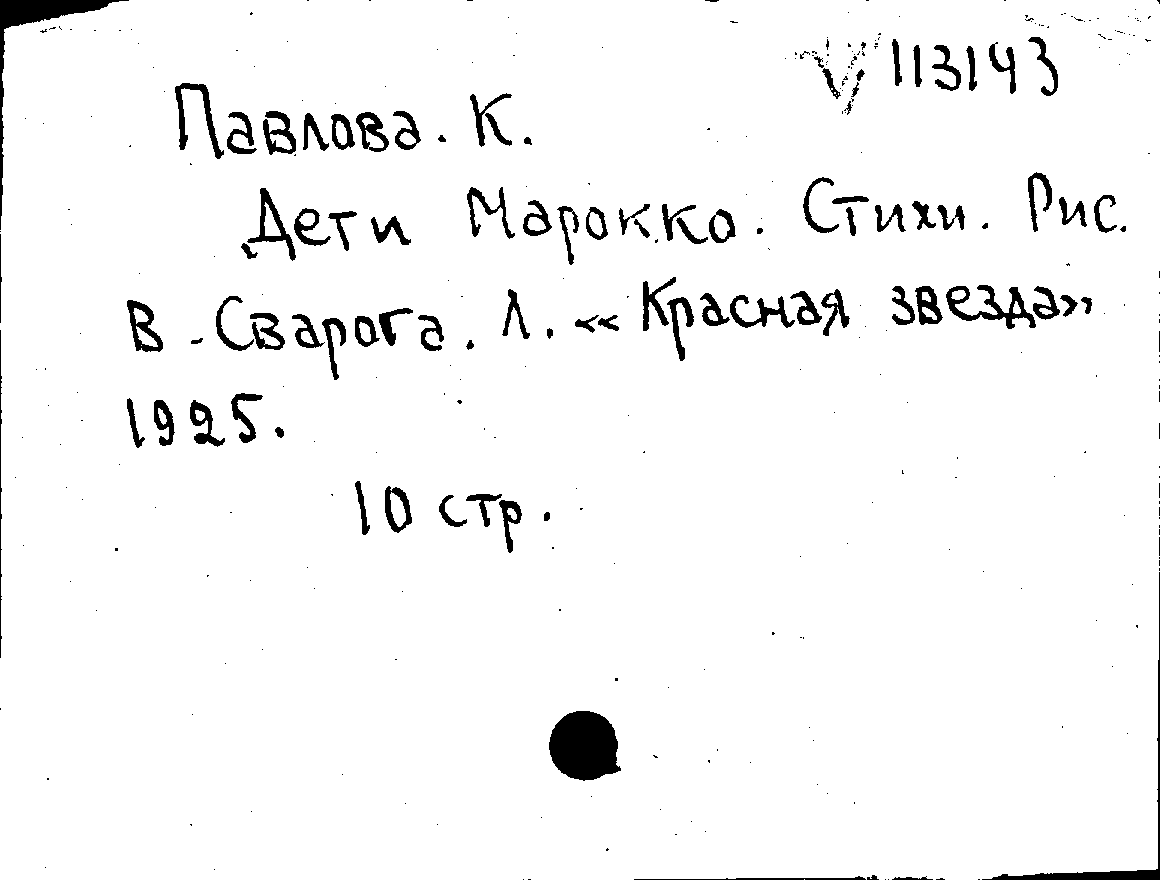 V 113143
Павлова. К.
Дети Марокко. Стихи. Рис.
В. Сварога. Л. «Красная звезда»
1925.
10 стр.